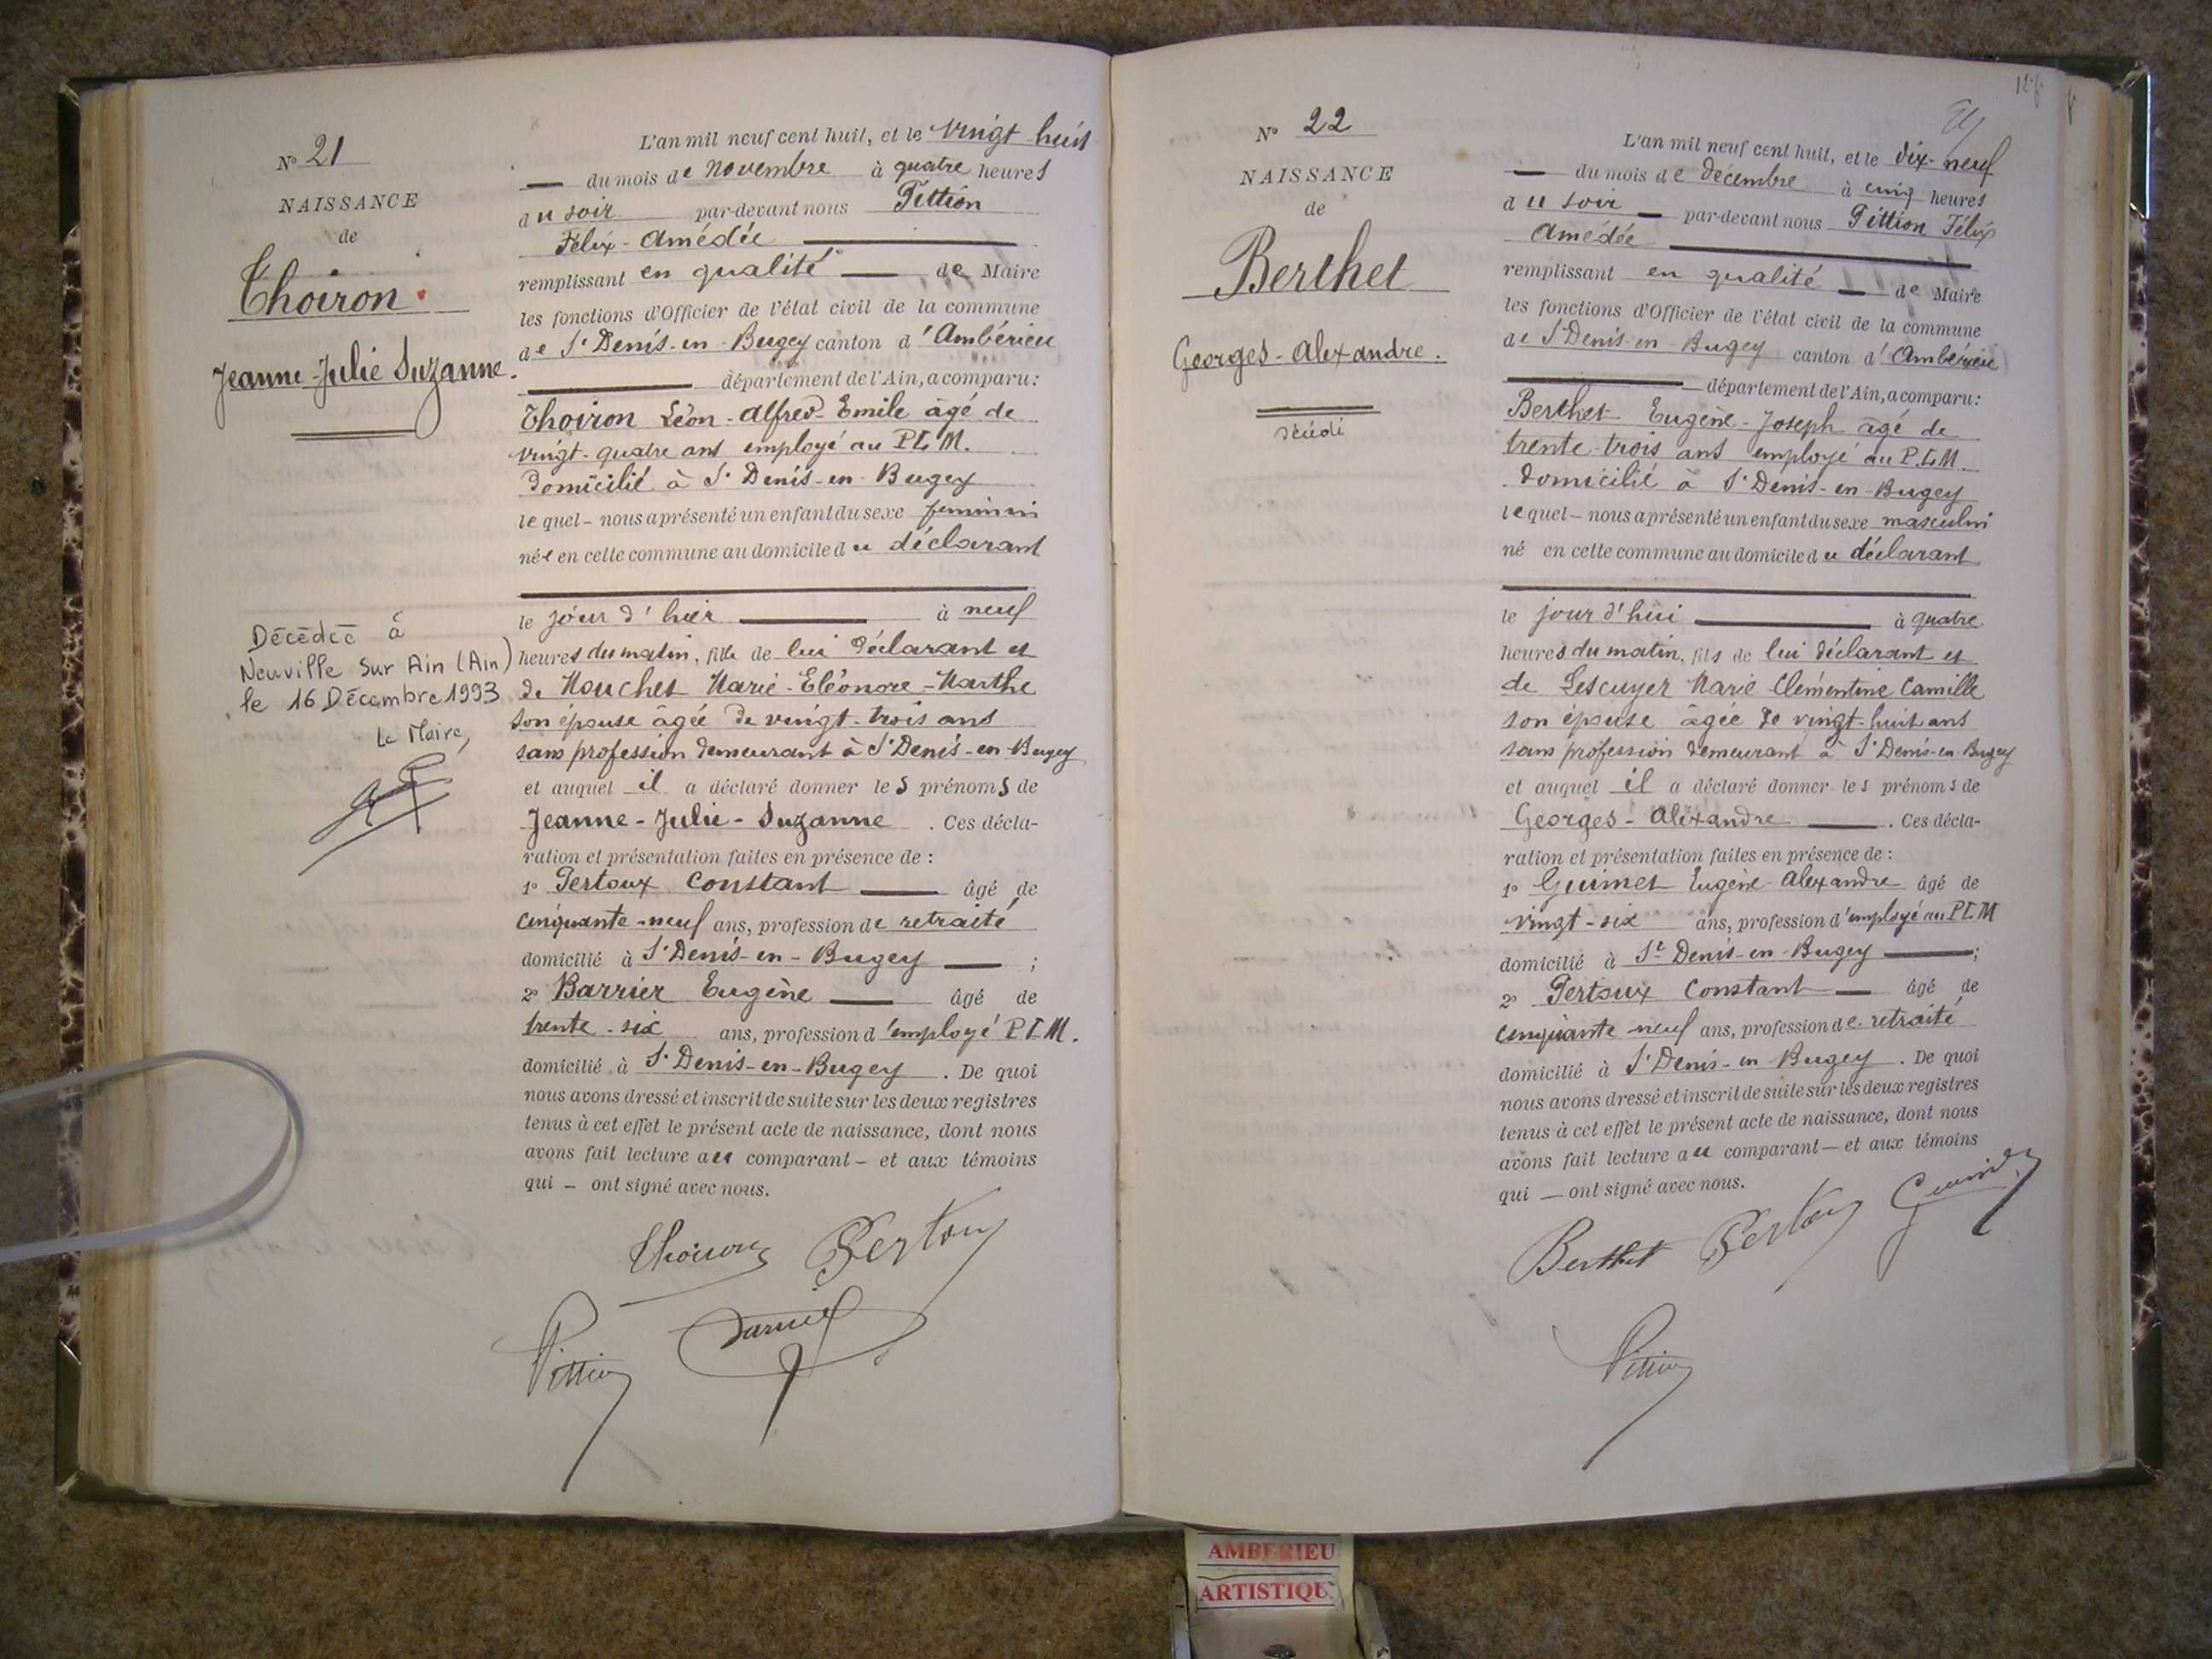 N° 21
NAISSANCE
de
Thoiron
Jeanne-Julie Suzanne.
Décédée à
Neuville sur Ain (Ain)
le 16 Décembre 1993
Le Maire,
L'an mil neuf cent huit, et le vingt huit
du mois de novembre à quatre heures
du soir par-devant nous Pittion
Félix-Amédée
remplissant en qualité de Maire
les fonctions d'Officier de l'état civil de la commune
de St Denis-en-Bugey canton d'Ambérieu
département de l'Ain, a comparu:
Thoiron Léon-Alfred-Emile âgé de
vingt-quatre ans employé au P.L.M.
domicilié à St Denis-en-Bugey
lequel – nous a présenté un enfant du sexe feminin
née en cette commune au domicile du déclarant
le jour d'hier à neuf
heures du matin, fille de lui déclarant et
de Mouchet Marie-Eléonore-Marthe
son épouse âgée de vingt-trois ans
sans profession demeurant à St Denis-en-Bugey
et auquel il a déclaré donner les prénoms de
Jeanne-Julie-Suzanne. Ces décla-
ration et présentation faites en présence de :
1° Pertoux Constant âgé de
cinquante-neuf ans, profession de retraité
domicilié à St Denis-en-Bugey ;
2° Barrier Eugène âgé de
trente-six ans, profession d'employé P.L.M.
domicilié à St Denis-en-Bugey. De quoi
nous avons dressé et inscrit de suite sur les deux registres
tenus à cet effet le présent acte de naissance, dont nous
avons fait lecture au comparant – et aux témoins
qui – ont signé avec nous.
Thoiron Pertoux
Pittion
N° 22
NAISSANCE
de
Berthet
Georges-Alexandre.
L'an mil neuf cent huit, et le dix-neuf
du mois de décembre à cinq heures
du soir – par-devant nous Pittion Félix
Amédée
remplissant en qualité – de Maire
les fonctions d'Officier de l'état civil de la commune
de St Denis-en-Bugey canton d'Ambérieu
département de l'Ain, a comparu:
Berthet Eugène-Joseph âgé de
trente-trois ans employé au P.L.M.
domicilié à St Denis-en-Bugey
lequel – nous a présenté un enfant du sexe masculin
né en cette commune au domicile du déclarant
le jour d'hui à quatre
heures du matin, fils de lui déclarant et
de Lescuyer Marie Clémentine Camille
son épouse âgée de vingt-huit ans
sans profession demeurant à St Denis-en-Bugey
et auquel il a déclaré donner les prénoms de
Georges-Aléxandre. Ces décla-
ration et présentation faites en présence de :
1° Guimet Eugène-Alexandre âgé de
vingt-six ans, profession d'employé au P.L.M
domicilié à St Denis-en-Bugey ;
2° Pertoux Constant – âgé de
cinquante-neuf ans, profession de retraité
domicilié à St Denis-en-Bugey. De quoi
nous avons dressé et inscrit de suite sur les deux registres
tenus à cet effet le présent acte de naissance, dont nous
avons fait lecture au comparant – et aux témoins
qui – ont signé avec nous.
Berthet Pertoux Guimet
Pittion
AMBERIEU
ARTISTIQUE